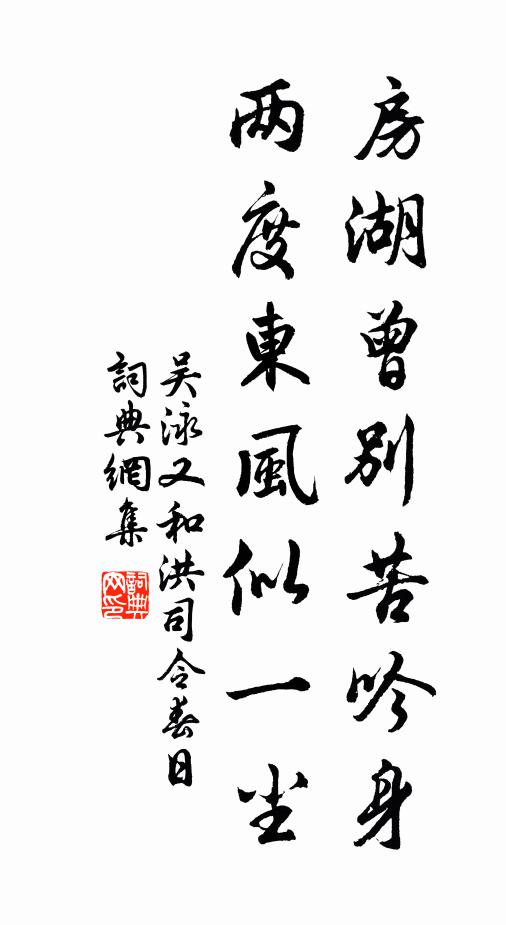 房湖曾別苦吟身
两度東風似一尘
吴泳又和洪司令春日
詞典網集
詞典网印